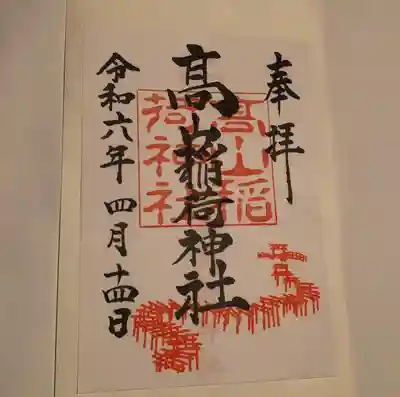 奉拝
髙山稲荷神社
髙山稲荷神社
令和六年 四月十四日